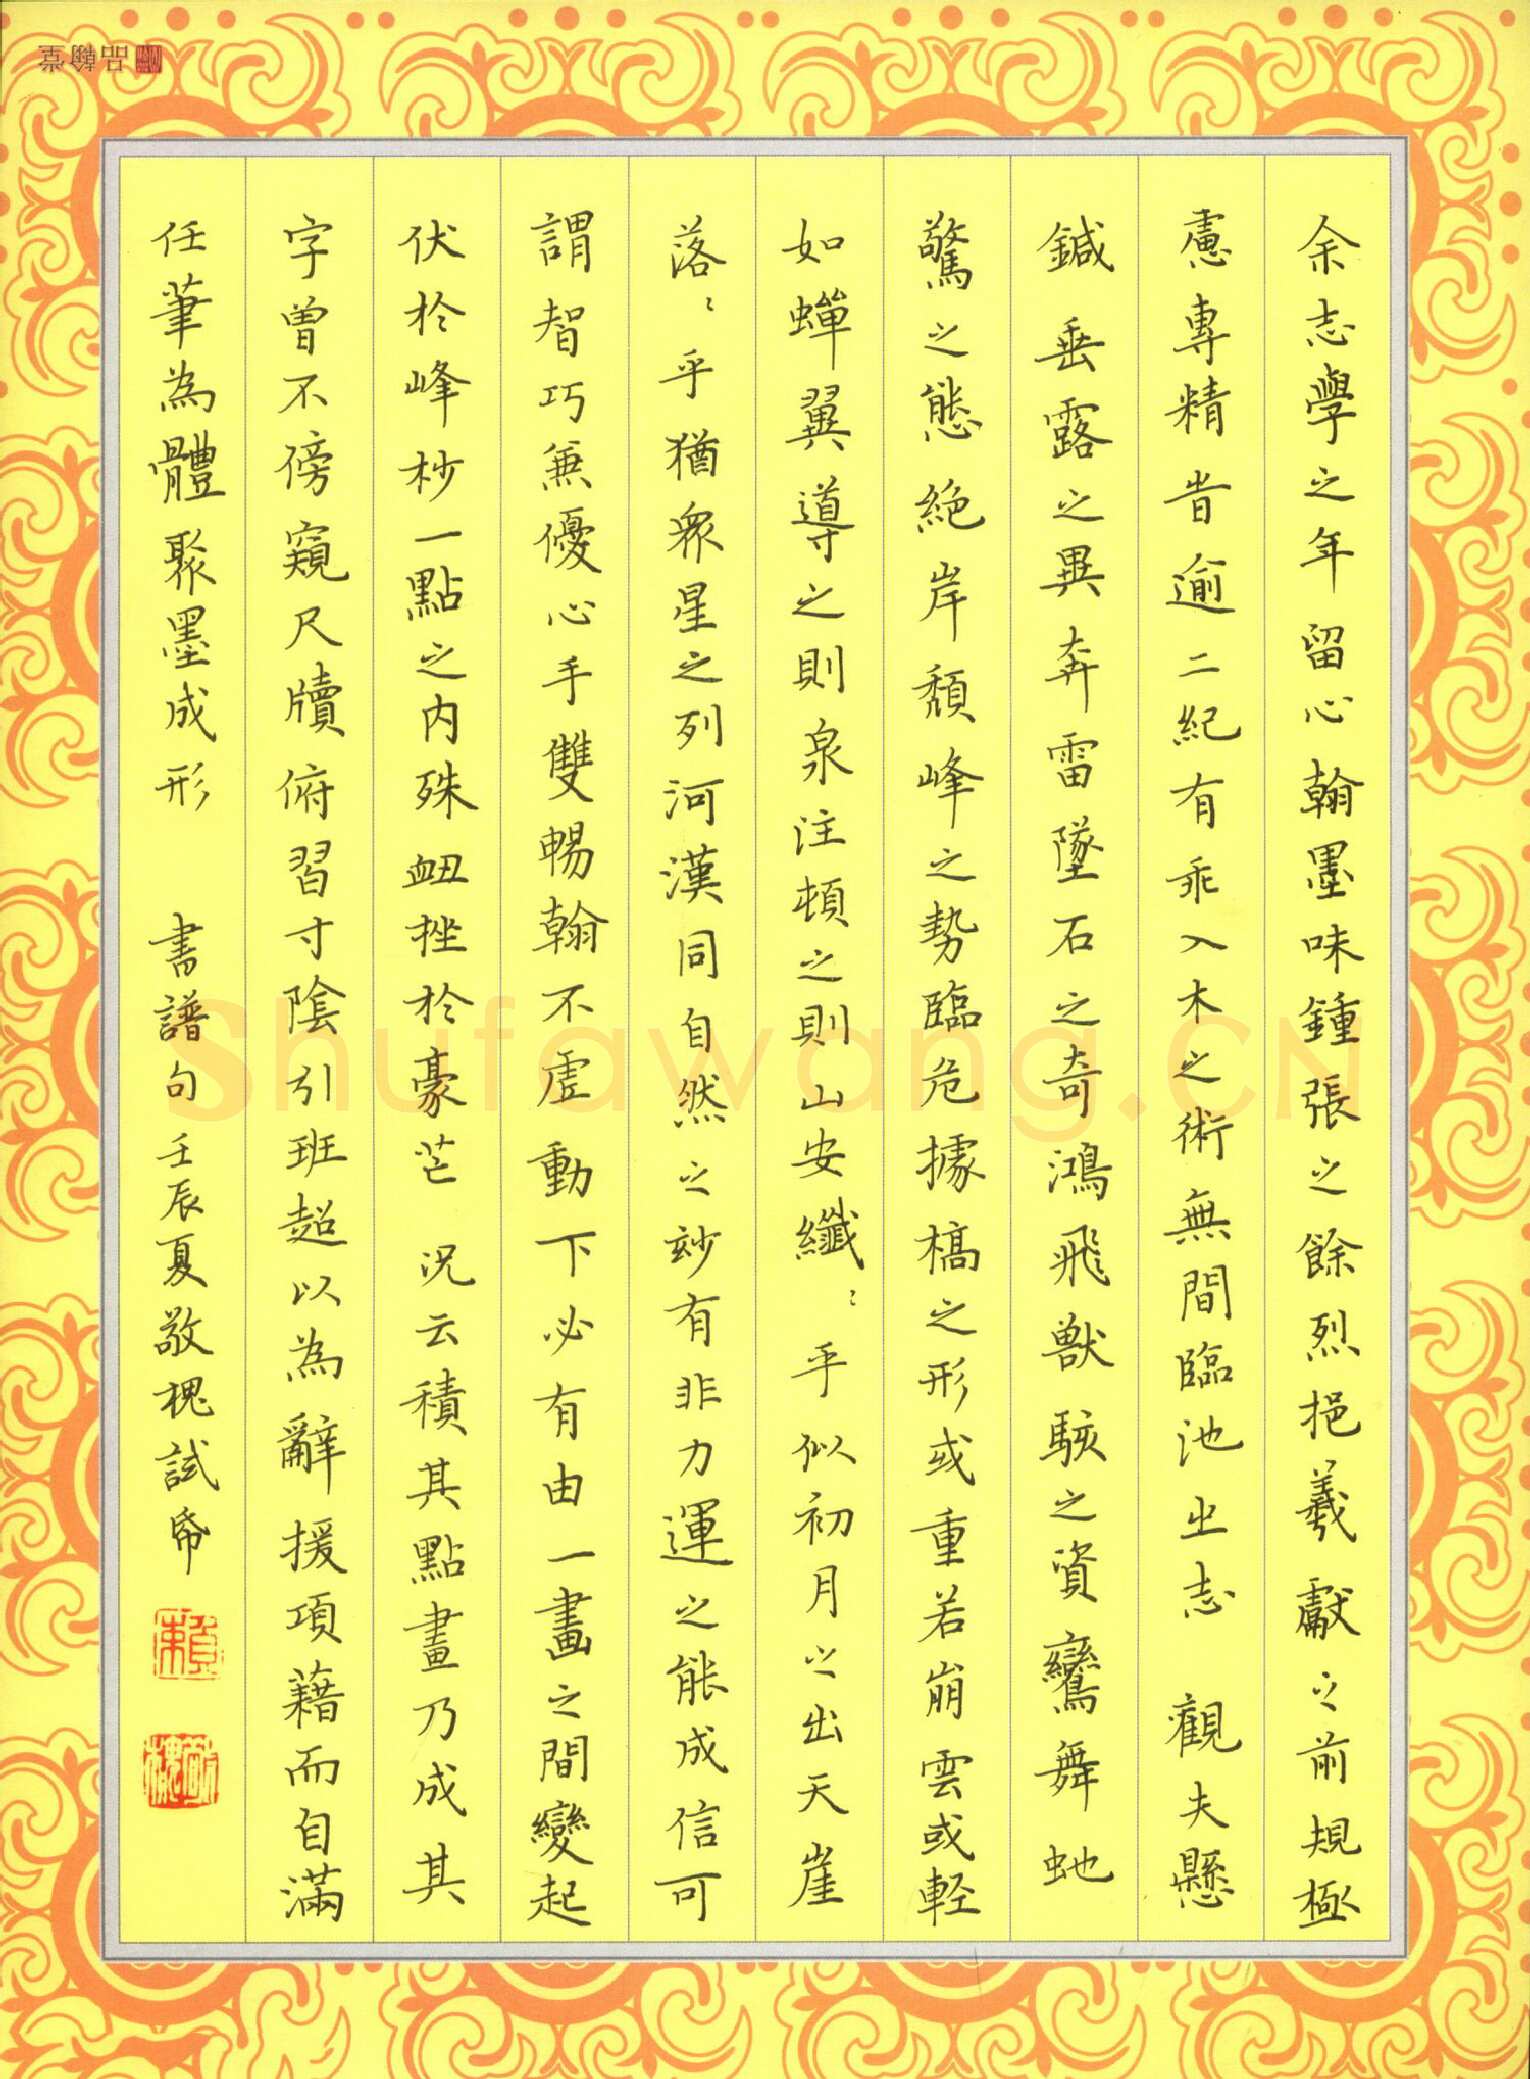 余志學之年留心翰墨味鍾張之餘烈挹羲獻之前規極
慮專精旹逾二紀有乖入木之術無間臨池之志 觀夫懸
鍼垂露之異奔雷墜石之奇鴻飛獸駭之資鸞舞虵
驚之態絕岸頹峰之勢臨危據槁之形或重若崩雲或輕
如蟬翼導之則泉注頓之則山安纖〻乎似初月之出天崖
落〻乎猶衆星之列河漢同自然之玅有非力運之能成信可
謂智巧兼優心手雙暢翰不虛動下必有由一畫之間變起
伏於峰杪一點之內殊衄挫於豪芒 况云積其點畫乃成其
字曾不傍窺尺牘俯習寸陰引班超以為辭援項藉而自滿
任筆為體聚墨成形 書譜句 壬辰夏敬槐試帋
賴
敬槐
Shufawang.CN